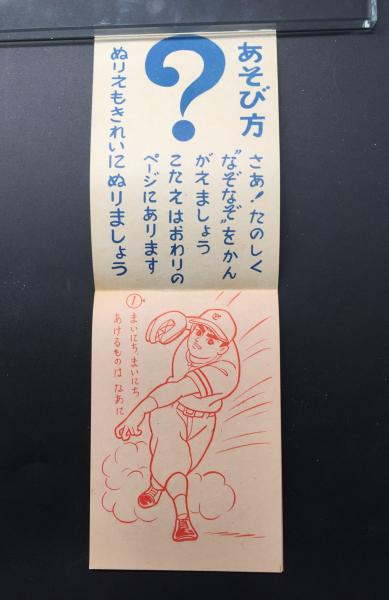 あそび方
?
さあ!たのしく
"なぞなぞ"をかん
がえましょう
こたえはおわりの
ページにあります
ぬりえもきれいにぬりましょう
①
まいにち、まいにち
あけるものは なあに